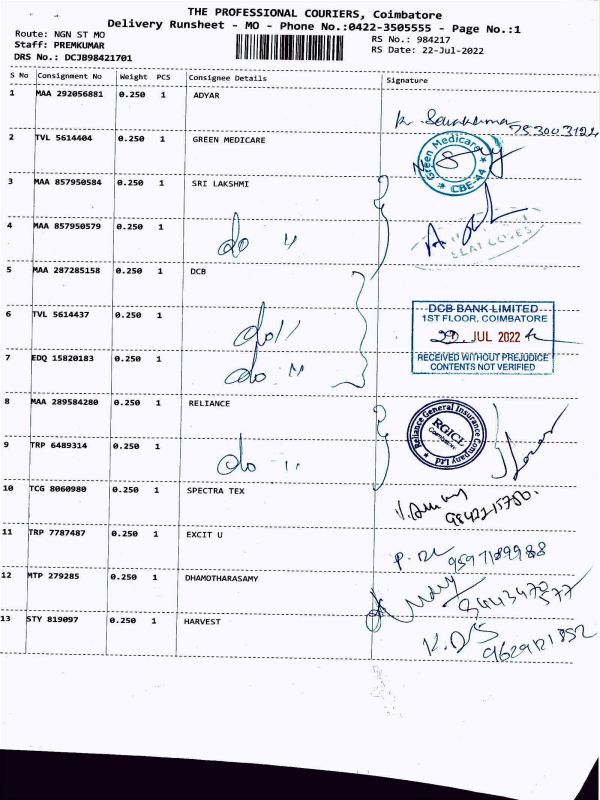 THE PROFESSIONAL COURIERS, Coimbatore
Delivery Runsheet - MO - Phone No.:0422-3505555 - Page No.:1
Route: NGN ST MO RS No.: 984217
Staff: PREMKUMAR RS Date: 22-Jul-2022
DRS No.: DCJB98421701
S No Consignment No Weight PCS Consignee Details Signature
1 MAA 292056881 0.250 1 ADYAR
2 TVL 5614404 0.250 1 GREEN MEDICARE
Green Medicare
CBE-44
3 MAA 857950584 0.250 1 SRI LAKSHMI
4 MAA 857950579 0.250 1 do "
5 MAA 287285158 0.250 1 DCB
DCB BANK LIMITED
1ST FLOOR, COIMBATORE
6 TVL 5614437 0.250 1 do "
JUL 2022
7 EDQ 15820183 0.250 1 do "
RECEIVED WITHOUT PREJUDICE
CONTENTS NOT VERIFIED
8 MAA 289584280 0.250 1 RELIANCE
Reliance General Insurance Company Ltd
RGICL
Coimbatore
9 TRP 6489314 0.250 1 do "
10 TCG 8060980 0.250 1 SPECTRA TEX
9842215780.
11 TRP 7787487 0.250 1 EXCIT U
9597189988
12 MTP 279285 0.250 1 DHAMOTHARASAMY
13 STY 819097 0.250 1 HARVEST
9629121852